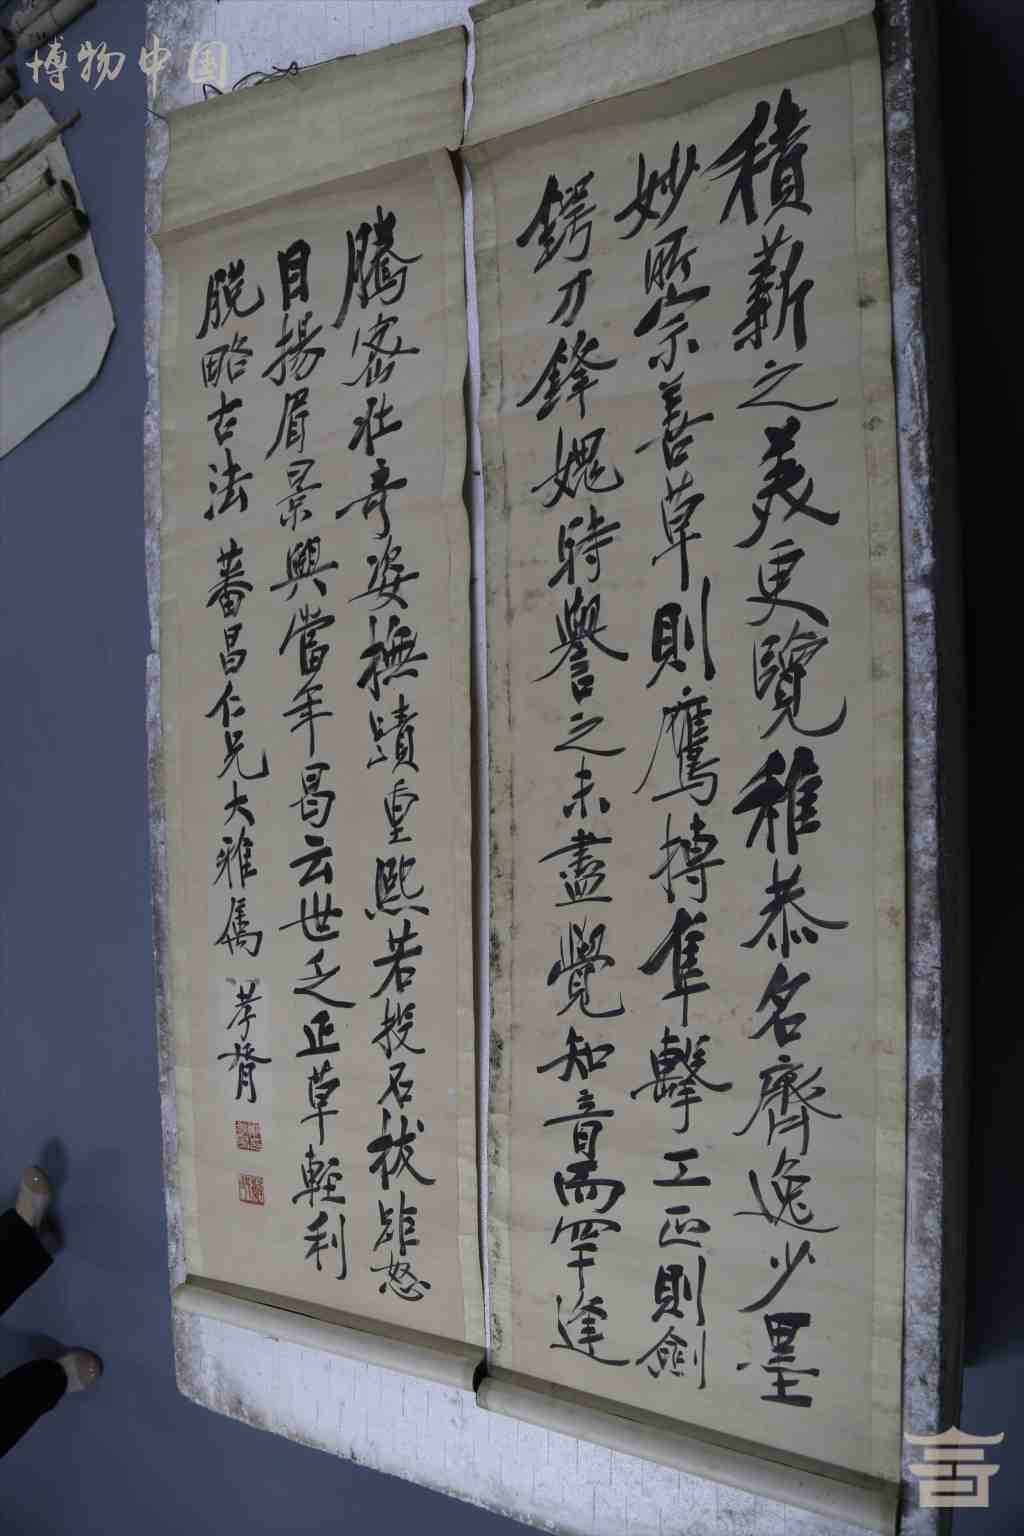 博物中国
積薪之美更覽稚恭名齊逸少墨
妙所宗善草則鷹搏隼擊工正則劍
鍔刀鋒媿時譽之未盡覺知音而罕逢
騰密壯奇姿撫蹟重熙若投石拔距怒
目揚眉景興當年曷云世乏正草輕利
脫略古法 蕃昌仁兄大雅屬 孝胥